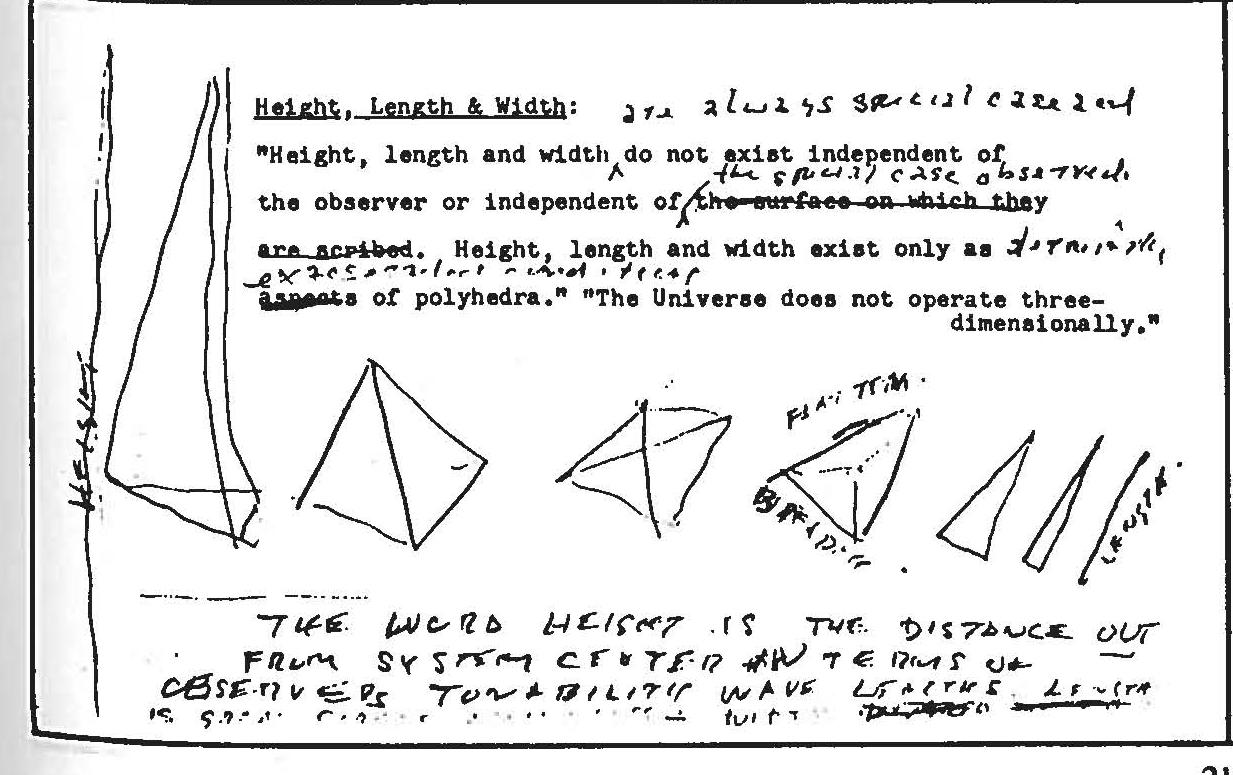 Height, Length & Width: are always special case and
"Height, length and width do not exist independent of
the special case observed.
the observer or independent of the surface on which they
are scribed. Height, length and width exist only as
aspects of polyhedra." "The Universe does not operate three-
dimensionally."
HEIGHT
BREADTH
LENGTH.
THE WORD HEIGHT IS THE DISTANCE OUT
FROM SYSTEM CENTER IN TERMS OF
OBSERVERS TUNABILITY WAVE LENGTHS. LENGTH
IS
21